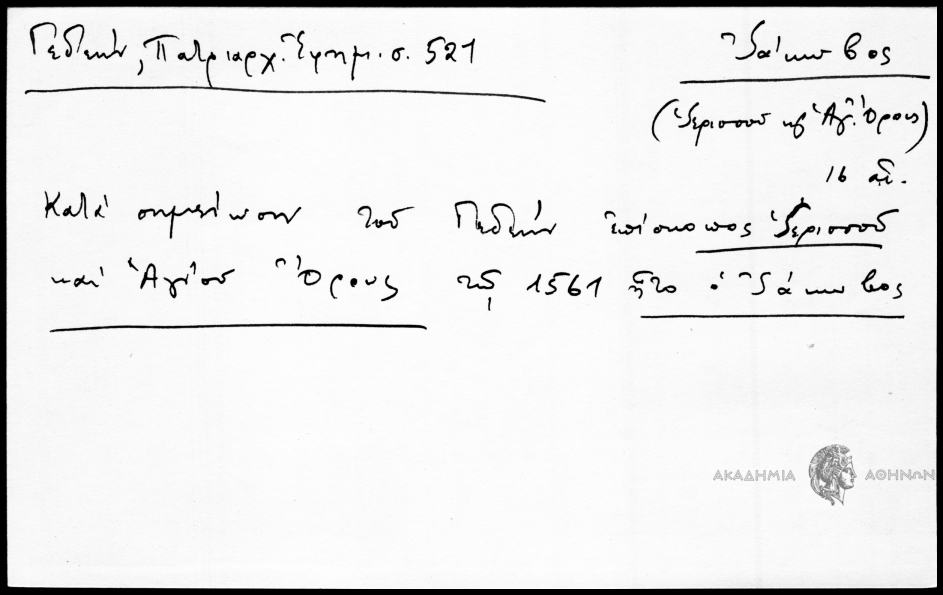 Γεδεών, Πατριαρχ. Ἐφημ. σ. 521
Ἰάκωβος
(Ἱερισσοῦ κ̀ Ἁγ. Ὄρους)
16 αἰ.
Κατὰ σημείωσιν τοῦ Γεδεὼν ἐπίσκοπος Ἱερισσοῦ
καὶ Ἁγίου Ὄρους τῷ 1561 ἦτο ὁ Ἰάκωβος
ΑΚΑΔΗΜΙΑ ΑΘΗΝΩΝ